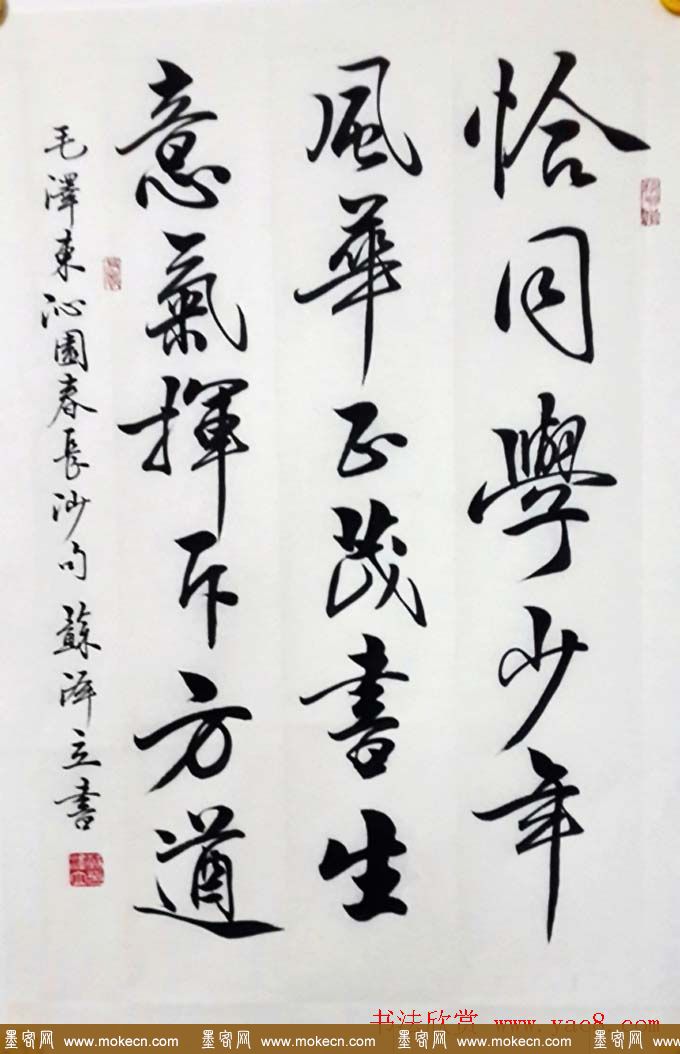 恰同學少年
風華正茂書生
意氣揮斥方遒
毛澤東沁園春長沙句 蘇澤立書
书法欣赏 www.yac8.com
墨客网 www.mokecn.com 墨客网 www.mokecn.com 墨客网 www.mokecn.com 墨客网 www.mokecn.com